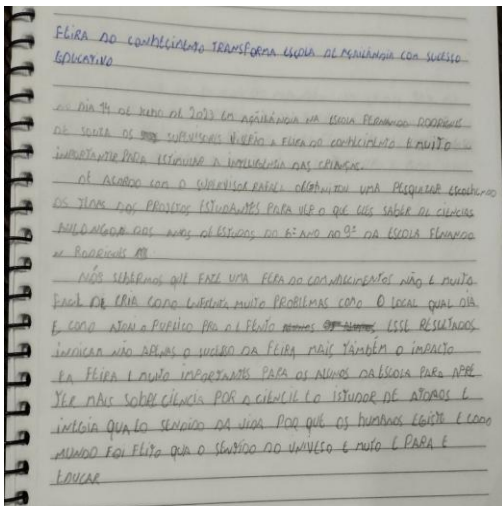 FEIRA DO CONHECIMENTO TRANSFORMA ESCOLA DE AÇAILÂNDIA COM SUCESSO
EDUCATIVO
NO DIA 14 DE JUNHO DE 2023 EM AÇAILÂNCIA NA ESCOLA FERNANDO RODRIGUE
DE SOUZA OS SUPERVISORES VIERÃO A FEIRA DO CONHECIMENTO E MUITO
IMPORTANTE PARA ESTIMULAR A INTELIGENCIA DAS CRIANÇAS.
DE ACORDO COM O SUPERVISOR RAFAEL UMA PESQUIZAR ESCOLHENDO
OS TEMAS DOS PROJETOS ESTUDANTES PARA VER O QUE LES SABER DE CIÊNCIAS
AULONGOR DOS ANOS DE ESTUDOS DO 6º ANO AO 9º DA ESCOLA FERNANDO
RODRIGUES
NÓS SEBERMOS QUE FAZE UMA FERA DO CONHESCIMENTOS NÃO E MUITO
FACIL DE CRIA COMO ENFRENTA MUITO PROBLEMAS COMO O LOCAL QUAL DIA
E COMO O PUBLICO PRA O EVENTO ESSE RESULTADOS
INDICAR NÃO APENAS O SUCESO DA FEIRA MAIS TAMBÉM O IMPACTO
EA FEIRA E MUITO IMPORTANTE PARA OS ALUNOS DA ESCOLA PARA APRE
TER MAIS SOBRE CIENCIA POR A CIENCIE E O ISTUDOR DE ATOMOS E
INEGIA QUALO SENDIDO DA VIDA POR QUE OS HUMANOS EGISTE E COMO
MUNDO FOI FEITO QUA O SENTIDO DO UNIVESO E MUTO E PARA E
EDUCAR